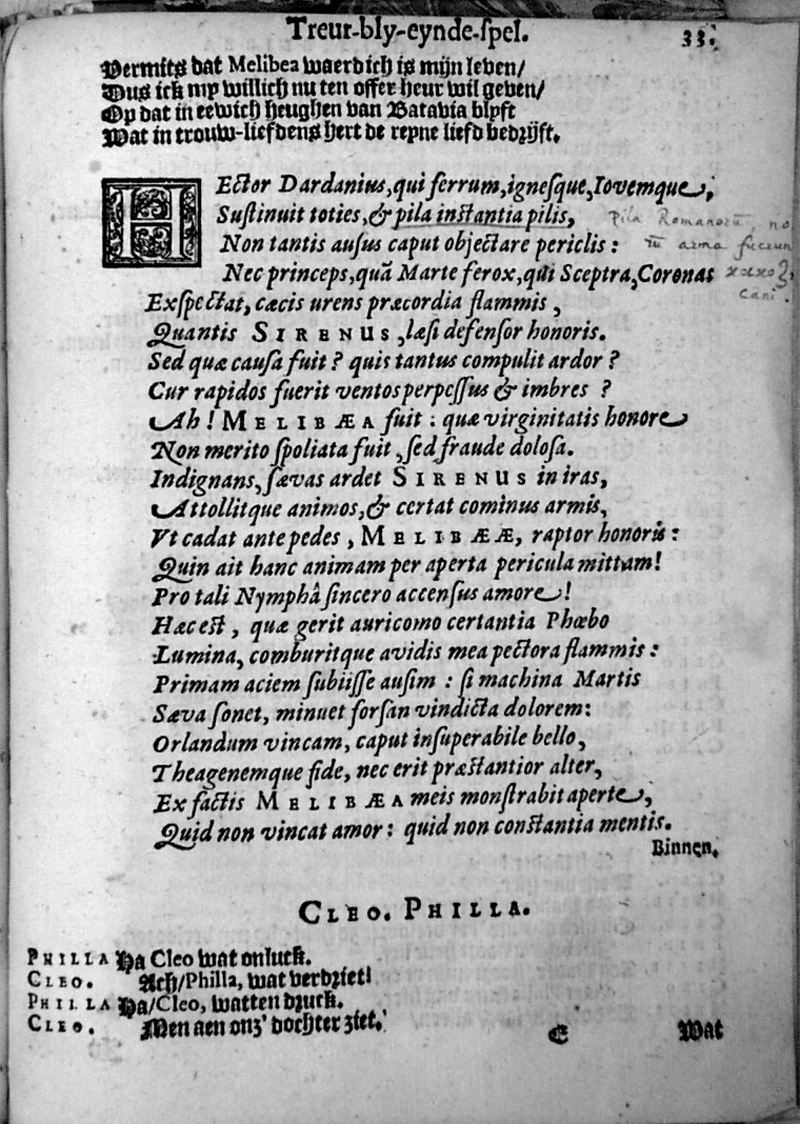 Treur-bly-eynde-ſpel. 33.
Vermits dat Melibea waerdich is mijn leven/
Dus ick my willich nu ten offer heur wil geven/
Op dat in eewich heughen van Batavia blyft
Wat in trouw-liefdens hert de reyne liefd bedrijft.
HEctor Dardanius, qui ferrum, igneſque, Iovemque,
Suſtinuit toties, & pila inſtantia pilis,
Non tantis auſus caput objectare periclis:
Nec princeps, quã Marte ferox, qui Sceptra, Coronas
Exſpectat, cæcis urens præcordia flammis,
Quantis SIRENUS, læſi defenſor honoris.
Sed quæ cauſa fuit? quis tantus compulit ardor?
Cur rapidos fuerit ventos perpeſſus & imbres?
Ah! MELIBÆA fuit: quæ virginitatis honore
Non merito ſpoliata fuit, ſed fraude doloſa.
Indignans, ſævas ardet SIRENUS in iras,
Attollitque animos, & certat cominus armis,
Vt cadat ante pedes, MELIBÆÆ, raptor honoris:
Quin ait hanc animam per aperta pericula mittam!
Pro tali Nymphâ ſincero accenſus amore!
Hæc eſt, quæ gerit auricomo certantia Phœbo
Lumina, comburitque avidis mea pectora flammis:
Primam aciem ſubiiſſe auſim: ſi machina Martis
Sæva ſonet, minuet forſan vindicta dolorem:
Orlandum vincam, caput inſuperabile bello,
Theagenemque fide, nec erit præſtantior alter,
Ex factis MELIBÆA meis monſtrabit aperte,
Quid non vincat amor: quid non conſtantia mentis.
Binnen.
pila Romanorũ, no
arma fuerun
cani.
CLEO. PHILLA.
PHILLA Ha Cleo wat onluck.
CLEO. Ach/Philla, wat verdriet!
PHILLA Ha/Cleo, watten druck.
CLEO. Men aen onz' dochter ziet.
C Wat